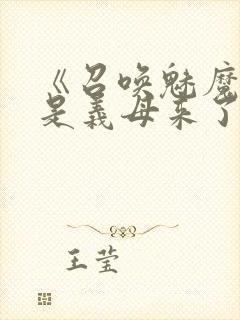 《召唤魅魔
是义母来了
王莹